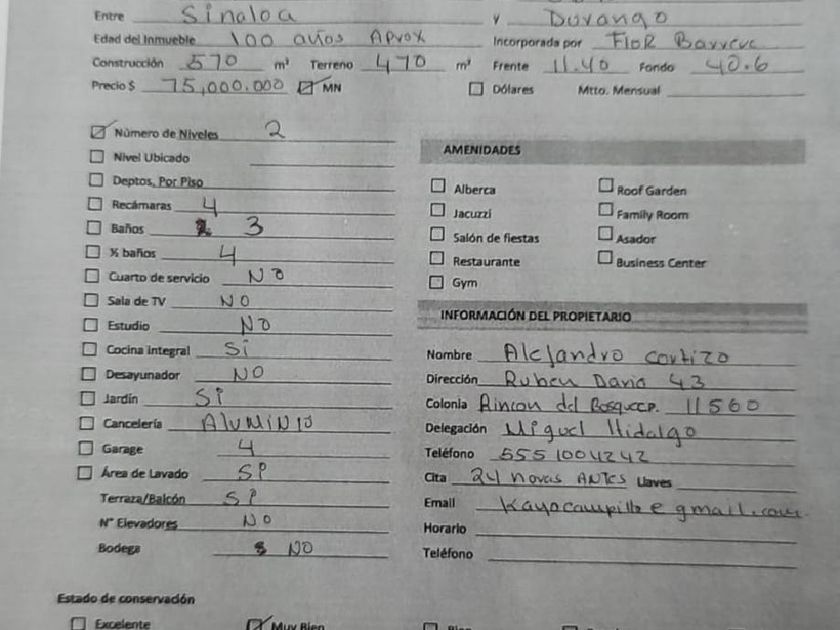 Entre Sinaloa y Durango
Edad del Inmueble 100 años Aprox Incorporada por Flor Barrera
Construcción 570 m² Terreno 470 m² Frente 11.40 Fondo 40.6
Precio $ 75,000.000 MN Dólares Mtto. Mensual
Número de Niveles 2
Nivel Ubicado
Deptos. Por Piso
Recámaras 4
Baños 3
½ baños 4
Cuarto de servicio NO
Sala de TV NO
Estudio NO
Cocina integral Si
Desayunador NO
Jardín Si
Cancelería Aluminio
Garage 4
Área de Lavado Si
Terraza/Balcón Si
N° Elevadores NO
Bodega NO
AMENIDADES
Alberca Roof Garden
Jacuzzi Family Room
Salón de fiestas Asador
Restaurante Business Center
Gym
INFORMACIÓN DEL PROPIETARIO
Nombre Alejandro cortizo
Dirección Ruben Dario 43
Colonia Rincon del Bosque CP. 11560
Delegación Miguel Hidalgo
Teléfono 5551004242
Cita 24 horas ANTES Llaves
Email Kayocampillo@gmail.com
Horario
Teléfono
Estado de conservación
Excelente Muy Bien